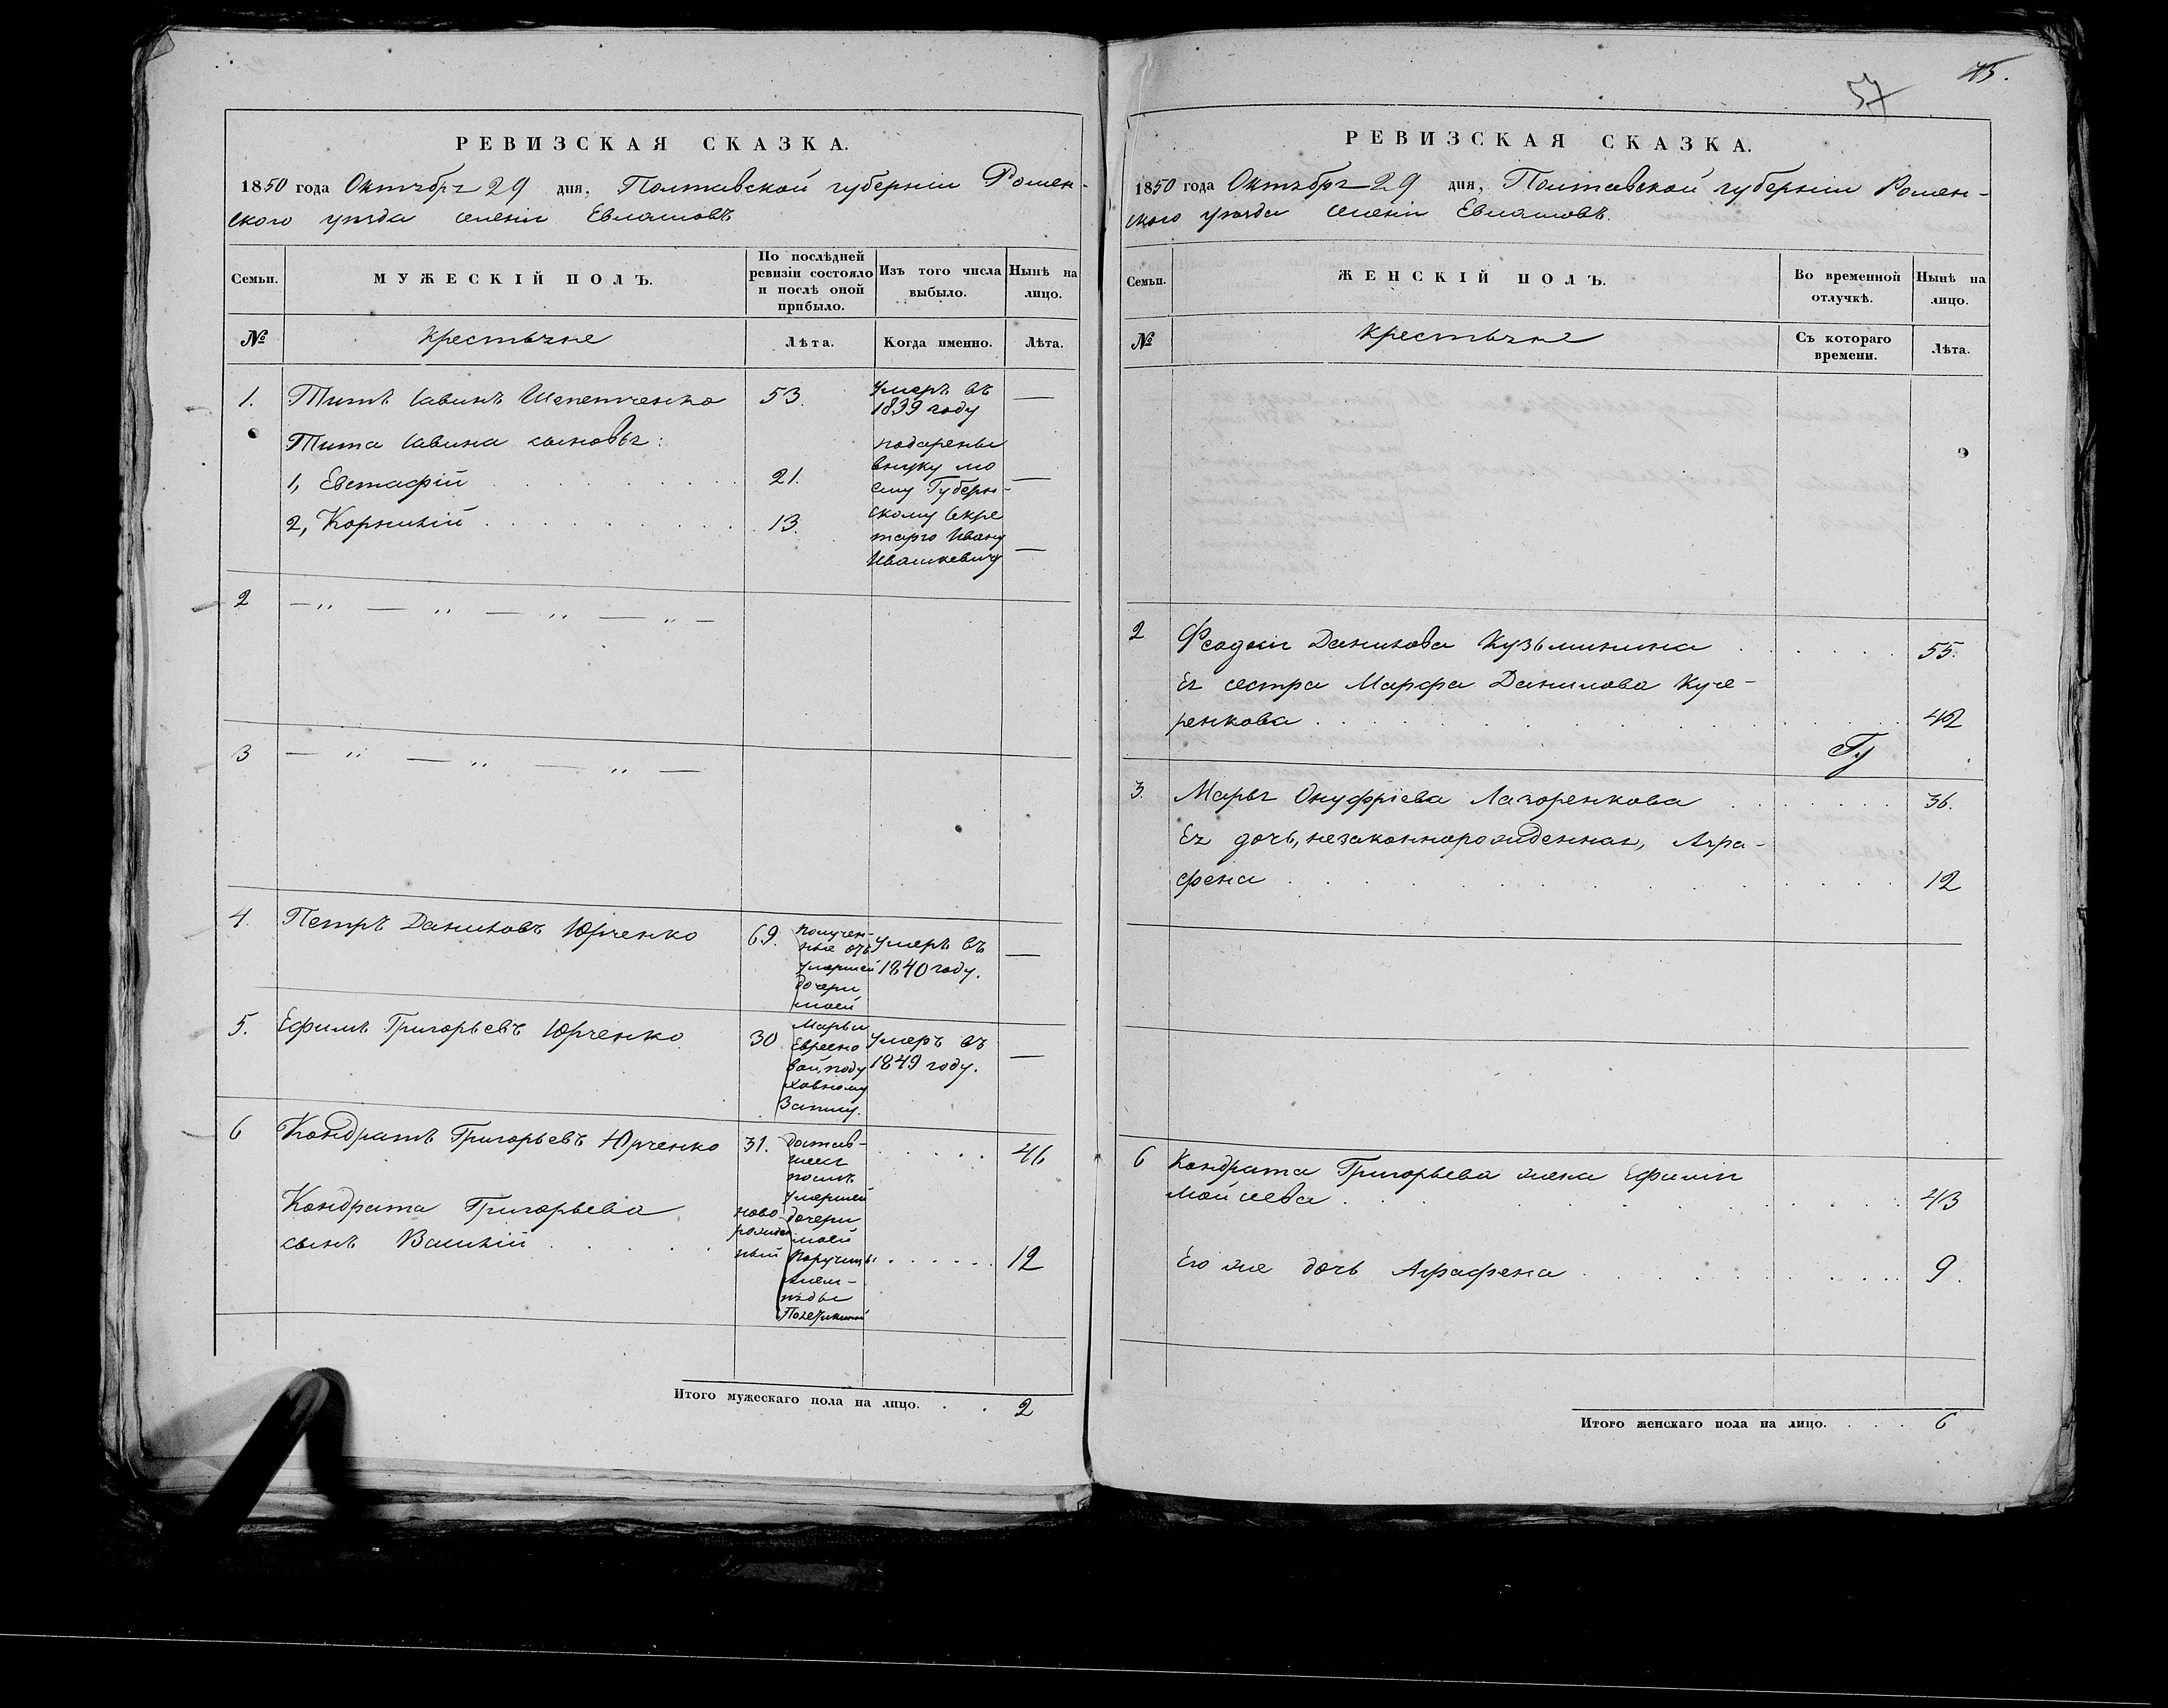 РЕВИЗСКАЯ СКАЗКА.
1850 года Октября 29 дня, Полтавской губерніи Ромен-
ского уѣзда селенія Евлашовъ
Семьи.
МУЖЕСКІЙ ПОЛЪ.
По послѣдней ревизіи состояло и послѣ оной прибыло.
Изъ того числа выбыло.
Нынѣ на лицо.
№
Крестьяне
Лѣта.
Когда именно.
Лѣта.
1. Титъ Савинъ Шепетченко 53. Умеръ въ 1839 году —
Тита Савина сыновья:
1, Евстафій 21. —
2, Корнилій 13. —
подарены
внуку мо
ему Губерн-
скому Секре
тарю Ивану
Ивашкевичу
2 — ,, — ,, — ,, — ,, —
3 — ,, — ,, — ,, —
4. Петръ Даниловъ Юрченко 69. Умеръ въ 1840 году. —
получен-
ные отъ
умершей
дочери
моей
Марьи
5. Ефимъ Григорьевъ Юрченко 30 Умеръ въ 1849 году. —
вой, поду
ховному
6 Кондратъ Григорьевъ Юрченко 31. 46
достав-
шеся
послѣ
умершей
дочери
моей
Кондрата Григорьева
сынъ Василій новорожденный 12
Итого мужескаго пола на лицо. 2
57
45.
РЕВИЗСКАЯ СКАЗКА.
1850 года Октября 29 дня, Полтавской губерніи Ромен-
ского уѣзда селенія Евлашовъ.
Семьи.
ЖЕНСКІЙ ПОЛЪ.
Во временной отлучкѣ.
Нынѣ на лицо.
№
Крестьяне
Съ котораго времени.
Лѣта.
2 Феодосія Данилова Кузьминина 55.
Ея сестра Марфа Данилова Куче-
ренкова 42
3. Марья Онуфріева Лазоренкова 36.
Ея дочь, незаконнорожденная, Агра-
фена 12
6 Кондрата Григорьева жена Ефимія
Мойсеева 43
Его же дочь Аграфена 9.
Итого женскаго пола на лицо. 6